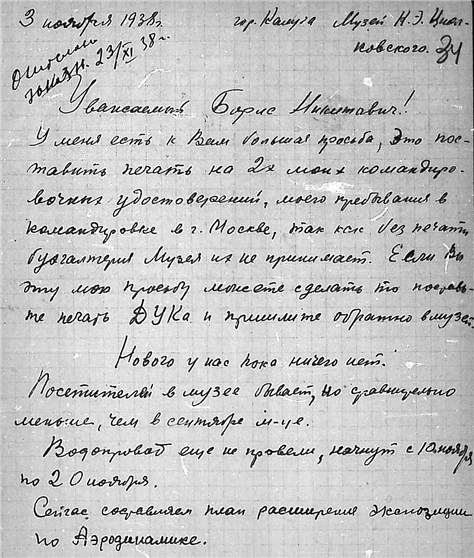 3 ноября 1938г. гор. Калуга Музей К.Э. Циол-
ковского. 34
Отослал
заказн. 23/XI 38г.
Уважаемый Борис Никитович!
У меня есть к Вам большая просьба, это пос-
тавить печать на 2х моих командиро-
вочных удостоверений, моего пребывания в
командировке в г. Москве, так как без печати
бухгалтерия Музея их не принимает. Если Вы
эту мою просьбу можете сделать то поставь-
те печать ДУКа и пришлите обратно в музей.
Нового у нас пока ничего нет.
Посетителей в музее бывает, но сравнительно
меньше, чем в сентябре м-це.
Водопровод еще не провели, начнут с 10 ноября
по 20 ноября.
Сейчас составляем план расширения экспозиции
по Аэродинамике.